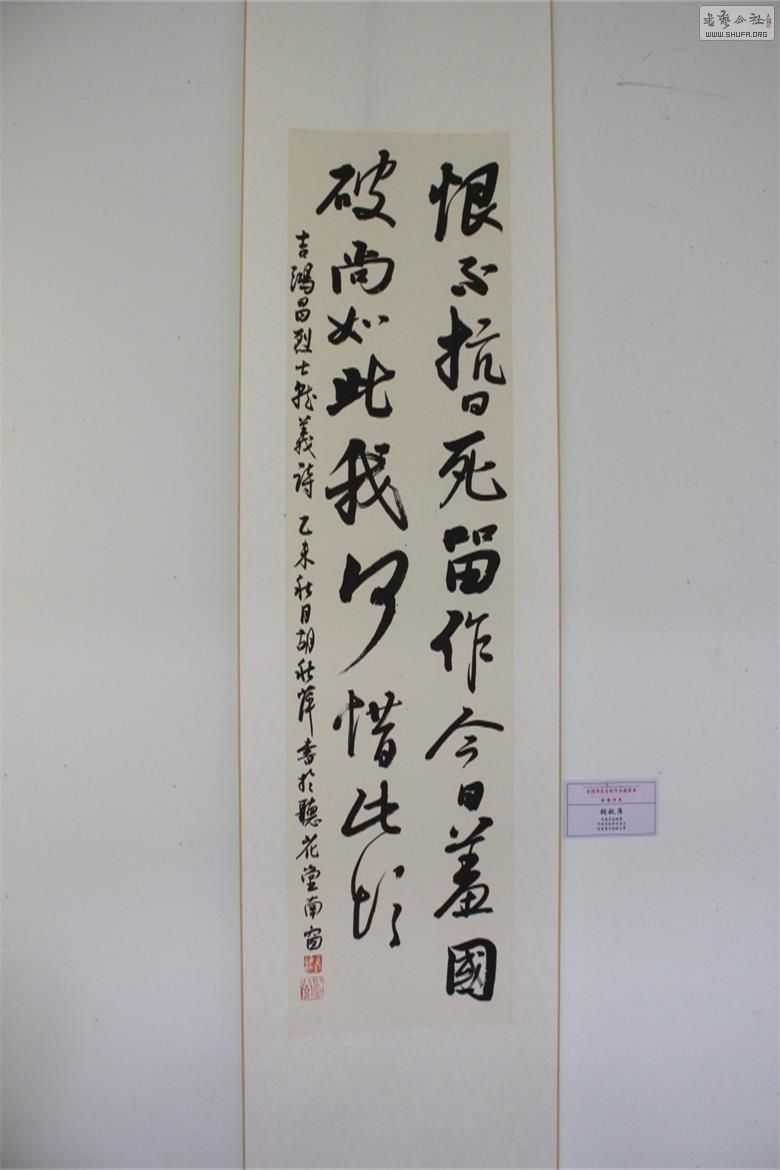 恨不抗日死留作今日羞國
破尚如此我何惜此頭
吉鴻昌烈士就義詩 乙未秋月胡秋萍書於聽花堂南窗
胡秋萍
書藝公社
WWW.SHUFA.ORG